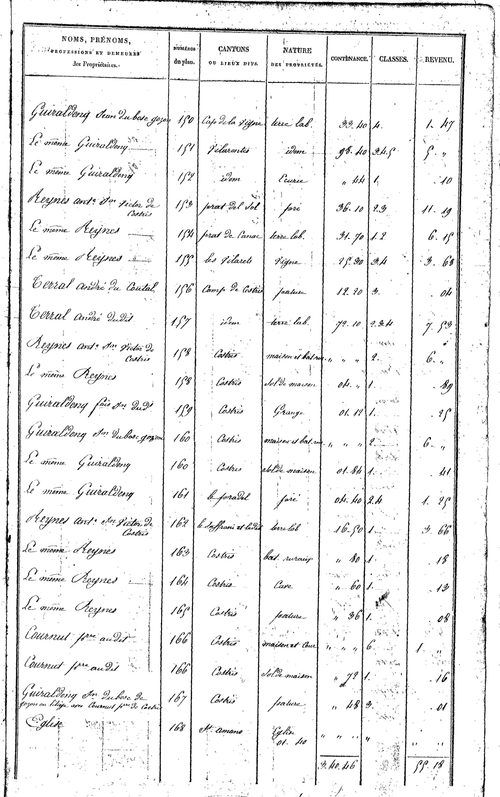 NOMS, PRÉNOMS, PROFESSIONS ET DEMEURES des Propriétaires. NUMÉROS du plan. CANTONS OU LIEUX DITS. NATURE DES PROPRIÉTÉS. CONTENANCE. CLASSES. REVENU.
Guiraldenq Jean du bosc 150 Cap de la Vigne terre lab. 33. 40 4. 1. 47
Le même Guiraldenq 151 idem 98. 40 3.4.5 5 "
Le même Guiraldenq 152 idem Ecurie " 44 1. . 10
Reynes ant.e de Costris 153 prat del Sol pré 36. 10 2.3 11. 19
Le même Reynes 154 prat de terre lab. 31. 70 1.2 6. 15
Le même Reynes 155 les Vigne 25. 30 3.4 3. 68
Terral andré du 156 Camp de Costris pature 12. 20 3. . 04
Terral andré dudit 157 idem terre lab. 72. 10 2.3.4 7. 53
Reynes ant.e de Costris 158 Costris maison et " " " 2. 6. "
Le même Reynes 158 Costris sol de maison 04. " 1. . 89
Guiraldenq 159 Costris Grange 01. 12 1. . 25
Guiraldenq du bosc 160 Costris maison et " " " 2. 6. "
Le même Guiraldenq 160 Costris sol de maison 01. 84 1. . 41
Le même Guiraldenq 161 le pradel pré 04. 40 2.4 1. 25
Reynes ant.e de Costris 162 terre lab 16. 50 1. 3. 66
Le même Reynes 163 Costris bat. ruraux " 80 1. . 18
Le même Reynes 164 Costris Cure " 60 1. . 13
Le même Reynes 165 Costris pature " 36 1. . 08
Cournut audit 166 Costris maison et Cour " " " 6 1 "
Cournut audit 166 Costris sol de maison " 72 1. . 16
Guiraldenq du bosc de
avec Cournut de Costris 167 Costris pature " 48 3. . 01
Eglise 168 St. amans Eglise 01. 40 " " " " " "
3. 40. 46 55 18